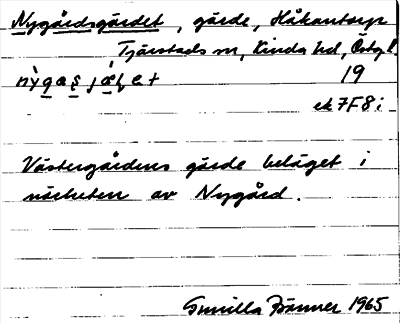 Nygårdsgärdet, gärde, Håkantorp
Tjärstads sn, Kinda hd, Östgl.
19
ek 7F8i
Västergårdens gärde beläget i
närheten av Nygård.
Gunilla Fränner 1965